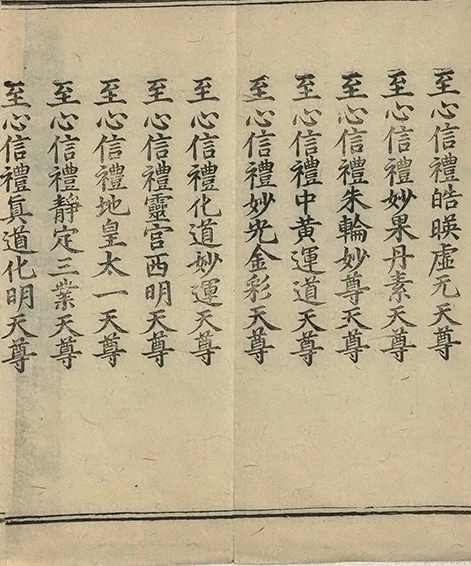 至心信禮皓暎虛无天尊
至心信禮妙果丹素天尊
至心信禮朱輪妙尊天尊
至心信禮中黃運道天尊
至心信禮妙光金彩天尊
至心信禮化道妙運天尊
至心信禮靈宮西明天尊
至心信禮地皇太一天尊
至心信禮靜定三業天尊
至心信禮真道化明天尊